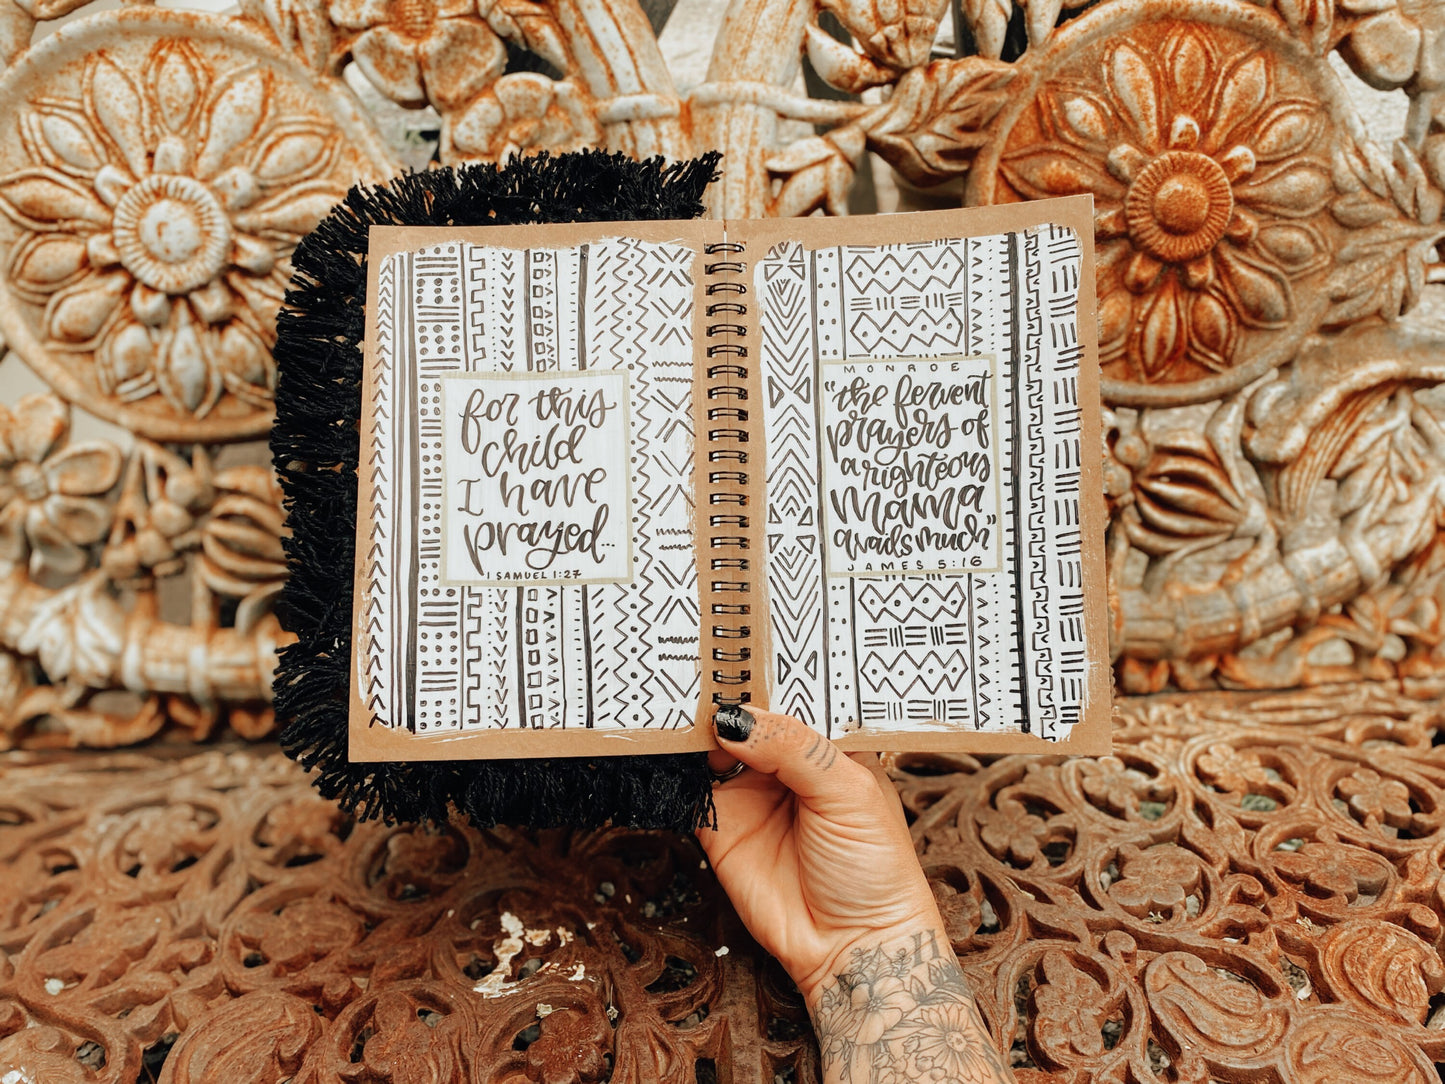 for this
child
I have
prayed...
1 SAMUEL 1:27
MONROE
"the fervent
prayers of
a righteous
mama
avails much"
JAMES 5:16